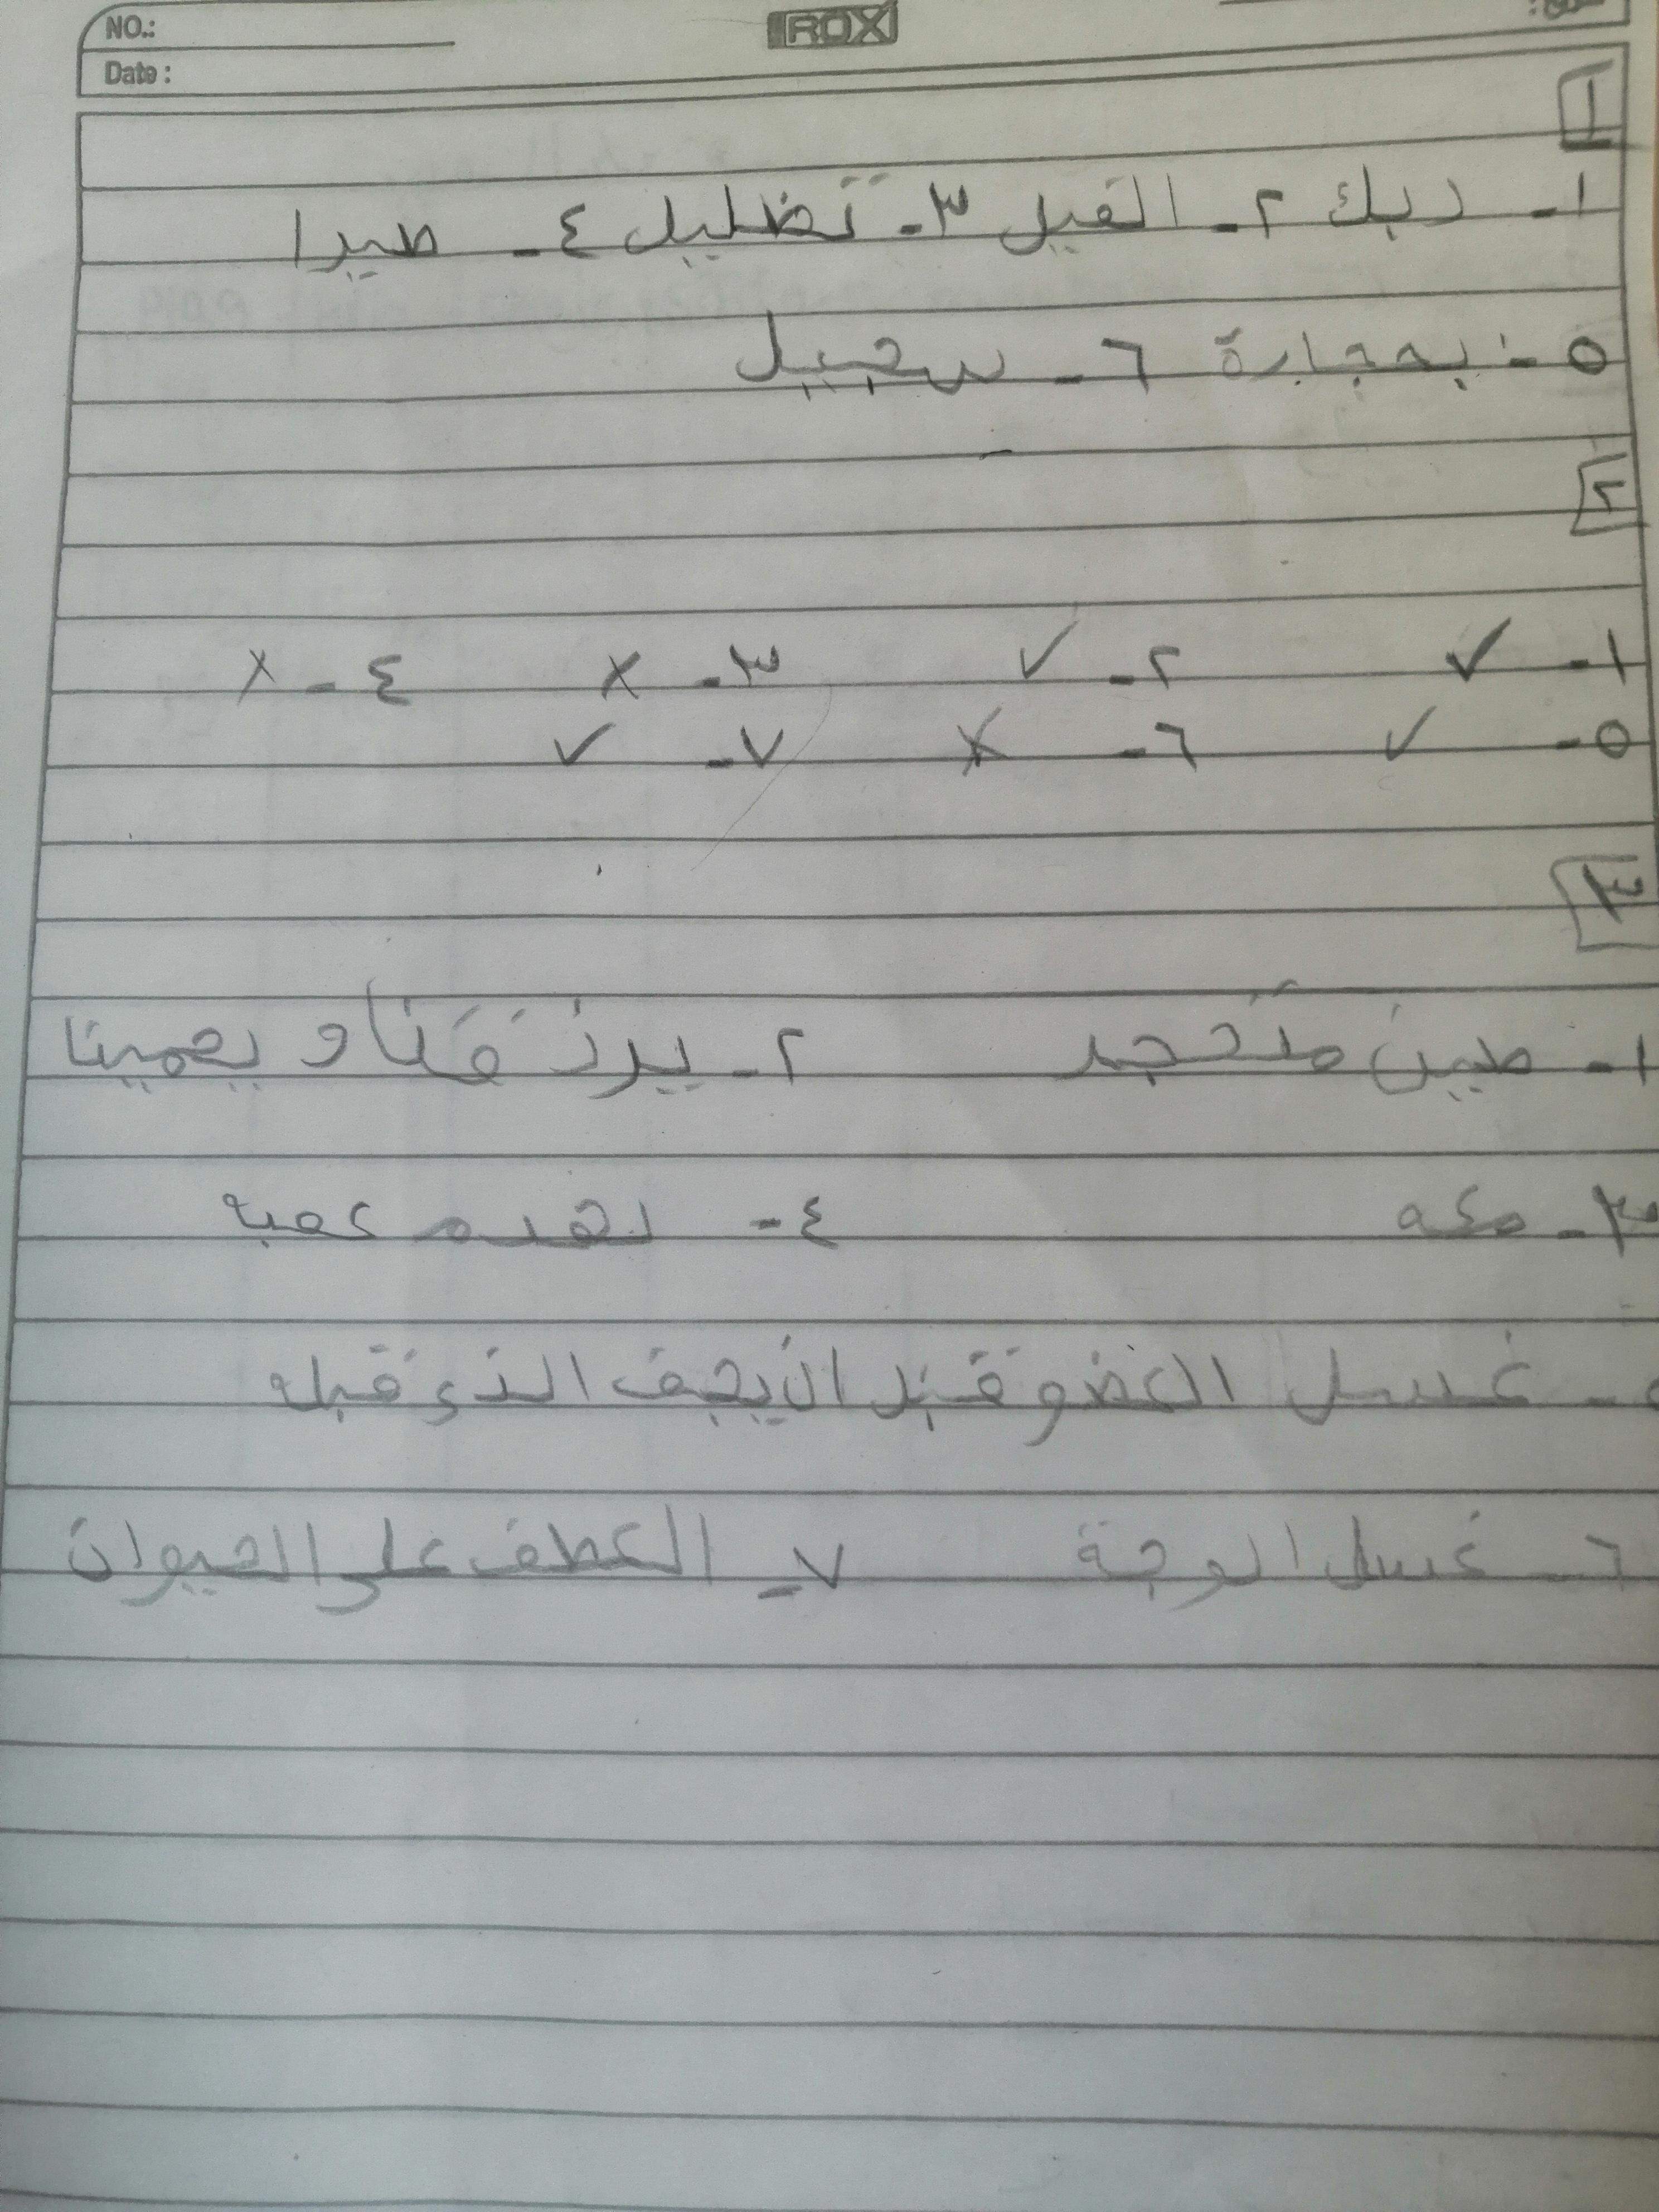 NO.:
ROX
Date :
١
١- ربك ٢- الفيل ٣- تضليل ٤- طيرا
٥- بحجارة ٦- سجيل
٢
١- ✓ ٢- ✓ ٣- x ٤- x
٥- ✓ ٦- x ٧- ✓
٣
١- طين متحجر ٢- يرزقنا و يحمينا
٣- مكه ٤- لهدم كعبه
٥- غسل العضو قبل ان يجف الذي قبله
٦- غسل الوجة ٧- العطف على الحيوان